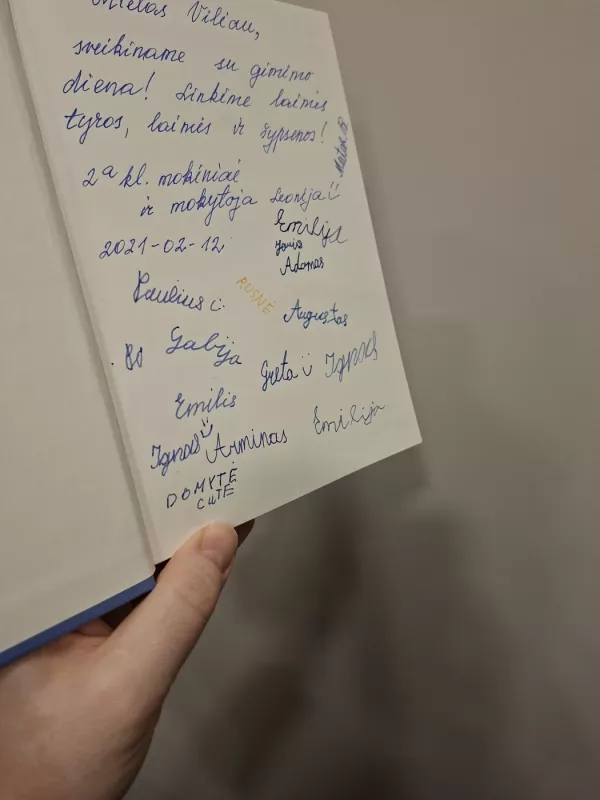 Mielas Viliau,
sveikiname su gimimo
diena! Linkime laimės
tyros, laimės ir šypsenos!
2a kl. mokiniai
ir mokytoja Leonija
Matas.B
2021-02-12
Emilija
Jonas
Adomas
Paulius
RUSNĖ
Augustas
Gabija
Greta
Ignas
Emilis
Ignas
Arminas
Emilija
DOMYTĖ
CUTE